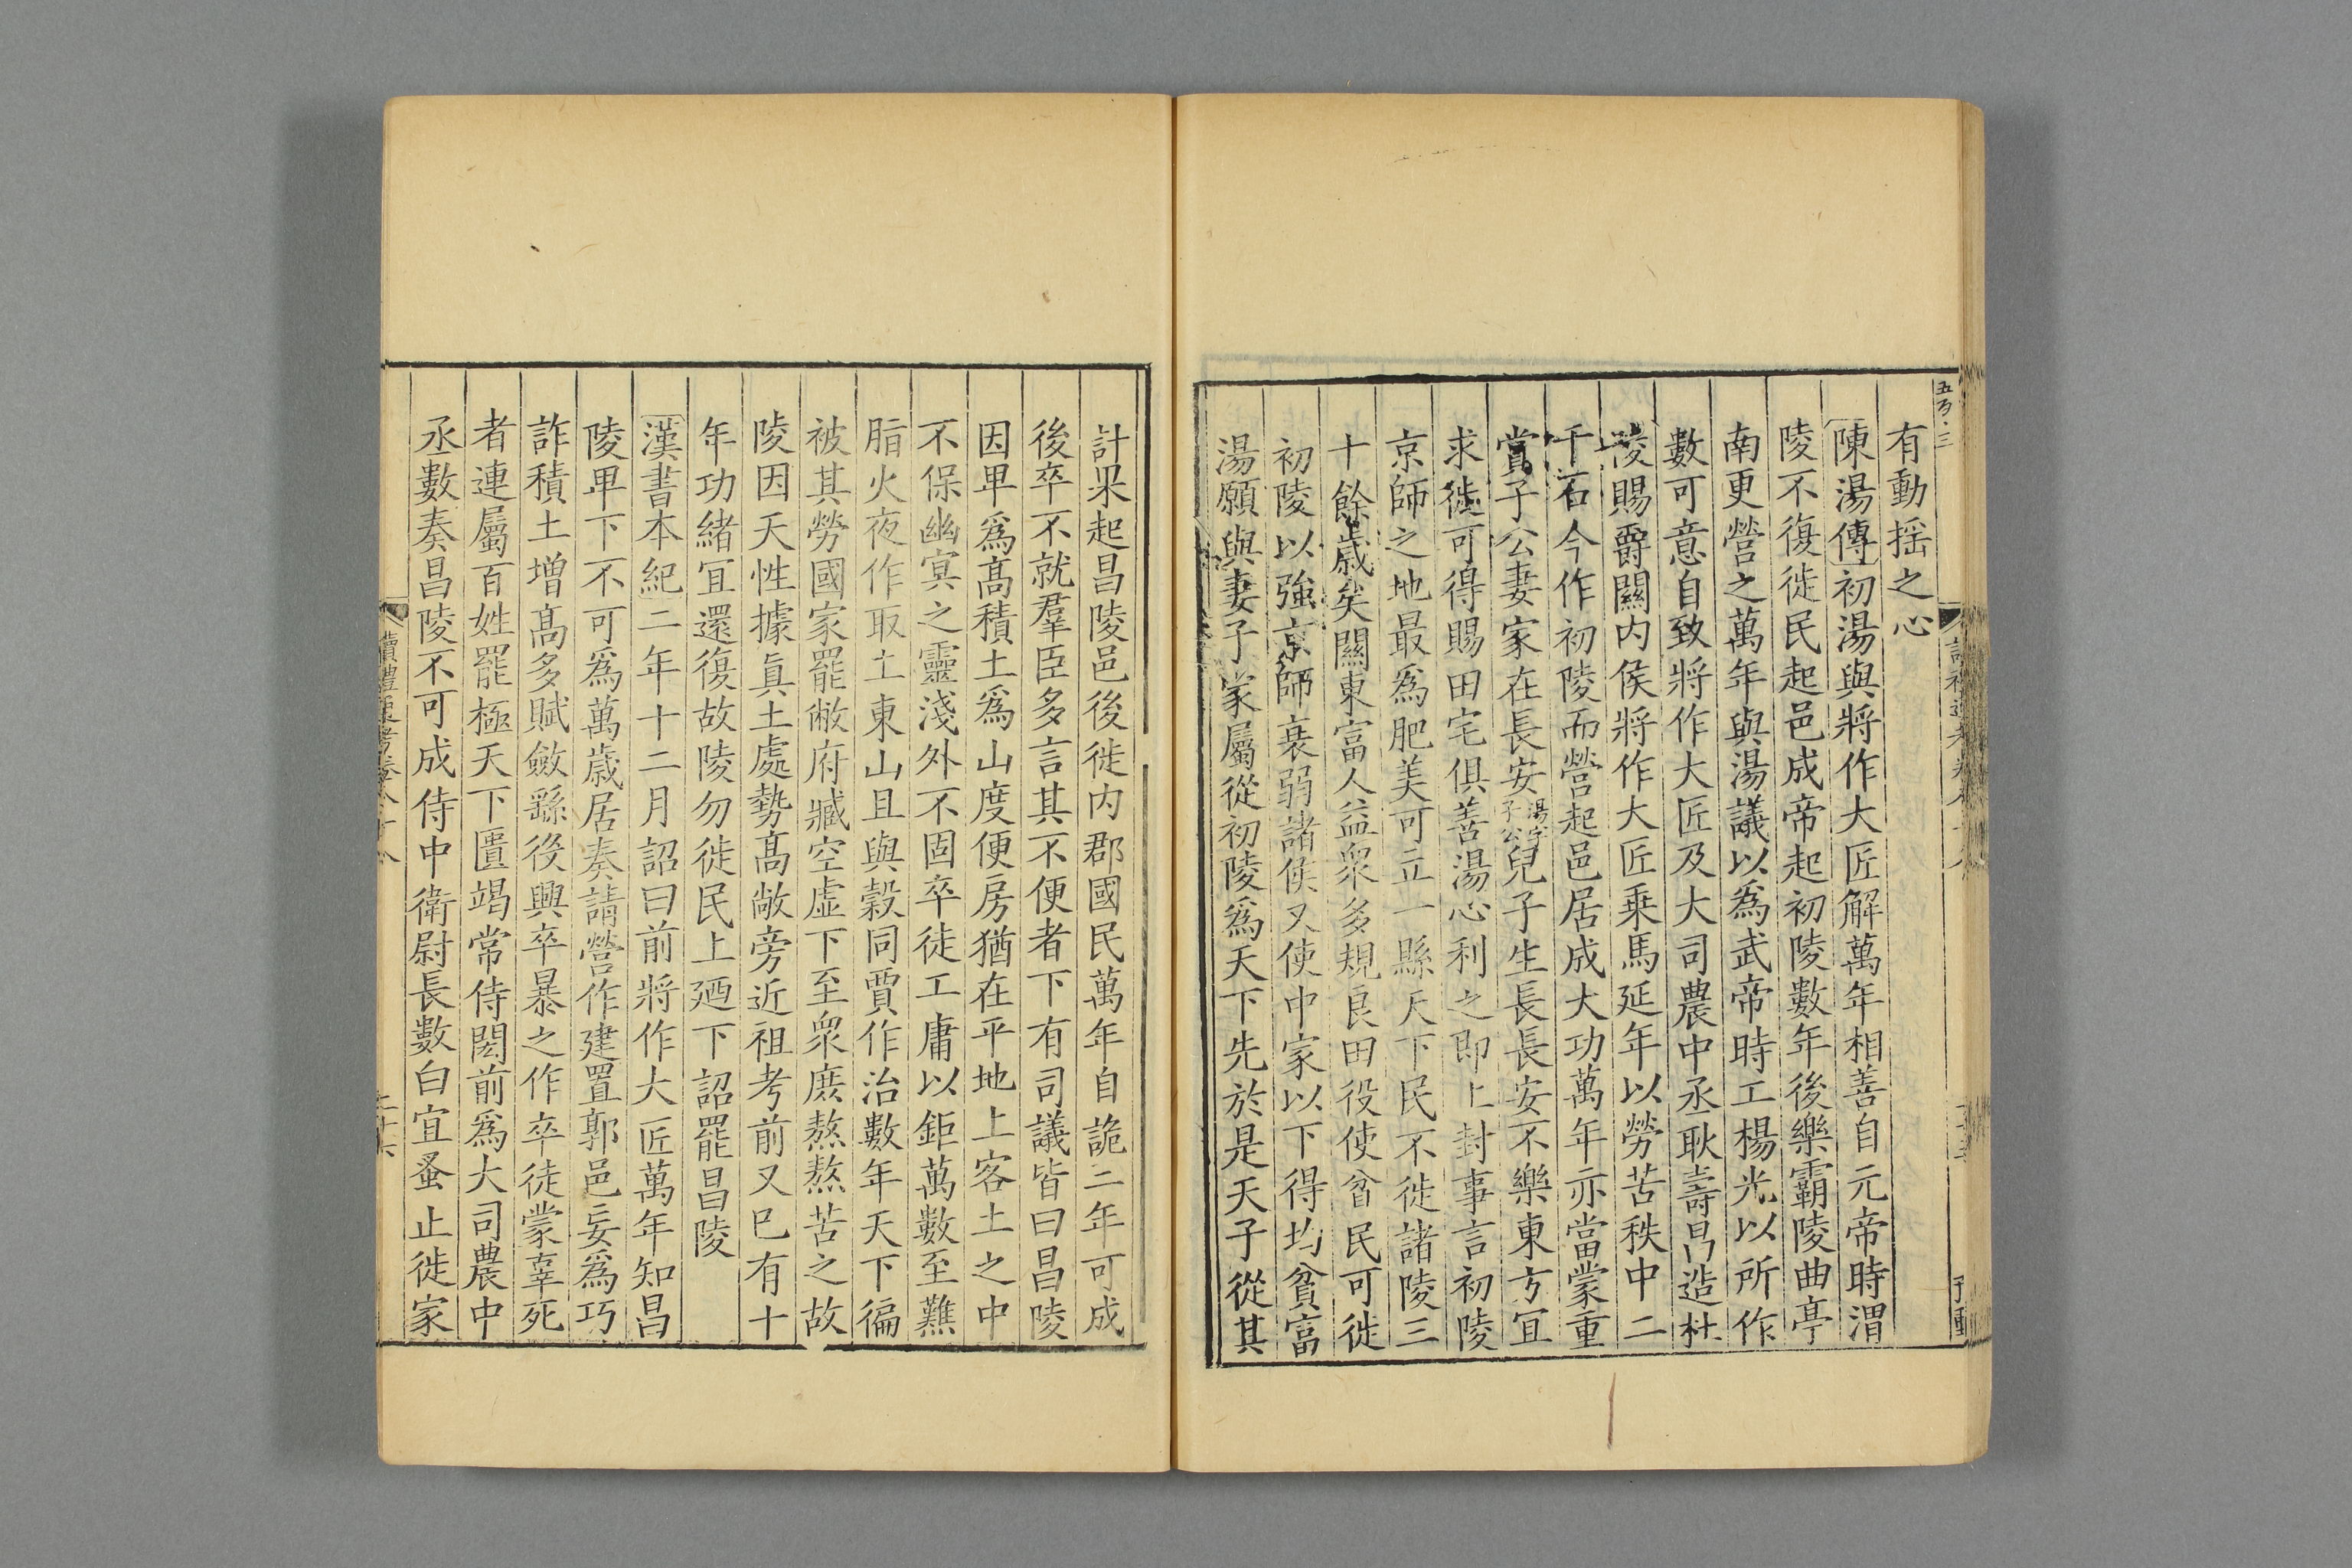 有動揺之心
陳湯傳初湯與將作大匠解萬年相善自元帝時渭
陵不復徙民起邑成帝起初陵數年後樂霸陵曲亭
南更營之萬年與湯議以爲武帝時工楊光以所作
數可意自致將作大匠及大司農中丞耿壽昌造杜
陵賜爵關内侯將作大匠乗馬延年以勞苦秩中二
千石今作初陵而營起邑居成大功萬年亦當蒙重
賞子公妻家在長安湯字子公兒子生長長安不樂東方宜
求徙可得賜田宅俱善湯心利之即上封事言初陵
京師之地最爲肥美可立一縣天下民不徙諸陵三
十餘歳矣關東富人益衆多規良田役使貧民可徙
初陵以強京師衰弱諸侯又使中家以下得均貧富
湯願與妻子家屬從初陵爲天下先於是天子從其
計果起昌陵邑後徙内郡國民萬年自詭三年可成
後卒不就羣臣多言其不便者下有司議皆曰昌陵
因卑爲髙積土爲山度便房猶在平地上客土之中
不保幽冥之靈淺外不固卒徒工庸以鉅萬數至難
脂火夜作取土東山且與穀同賈作治數年天下徧
被其勞國家罷敝府臧空虛下至衆庶熬熬苦之故
陵因天性據眞土處勢髙敞旁近祖考前又已有十
年功緒宜還復故陵勿徙民上廼下詔罷昌陵
漢書本紀二年十二月詔曰前將作大匠萬年知昌
陵卑下不可爲萬歳居奏請營作建置郭邑妄爲巧
詐積土增髙多賦斂繇役興卒暴之作卒徒蒙辜死
者連屬百姓罷極天下匱竭常侍閎前爲大司農中
丞數奏昌陵不可成侍中衛尉長數白宜蚤止徙家
讀禮通考卷八十八